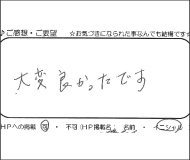 ♪ご感想・ご要望 ☆お気づきになられた事なんでも結構です☆
大変良かったです
HPへの掲載 可・不可(HP掲載名: 名前・イニシャル